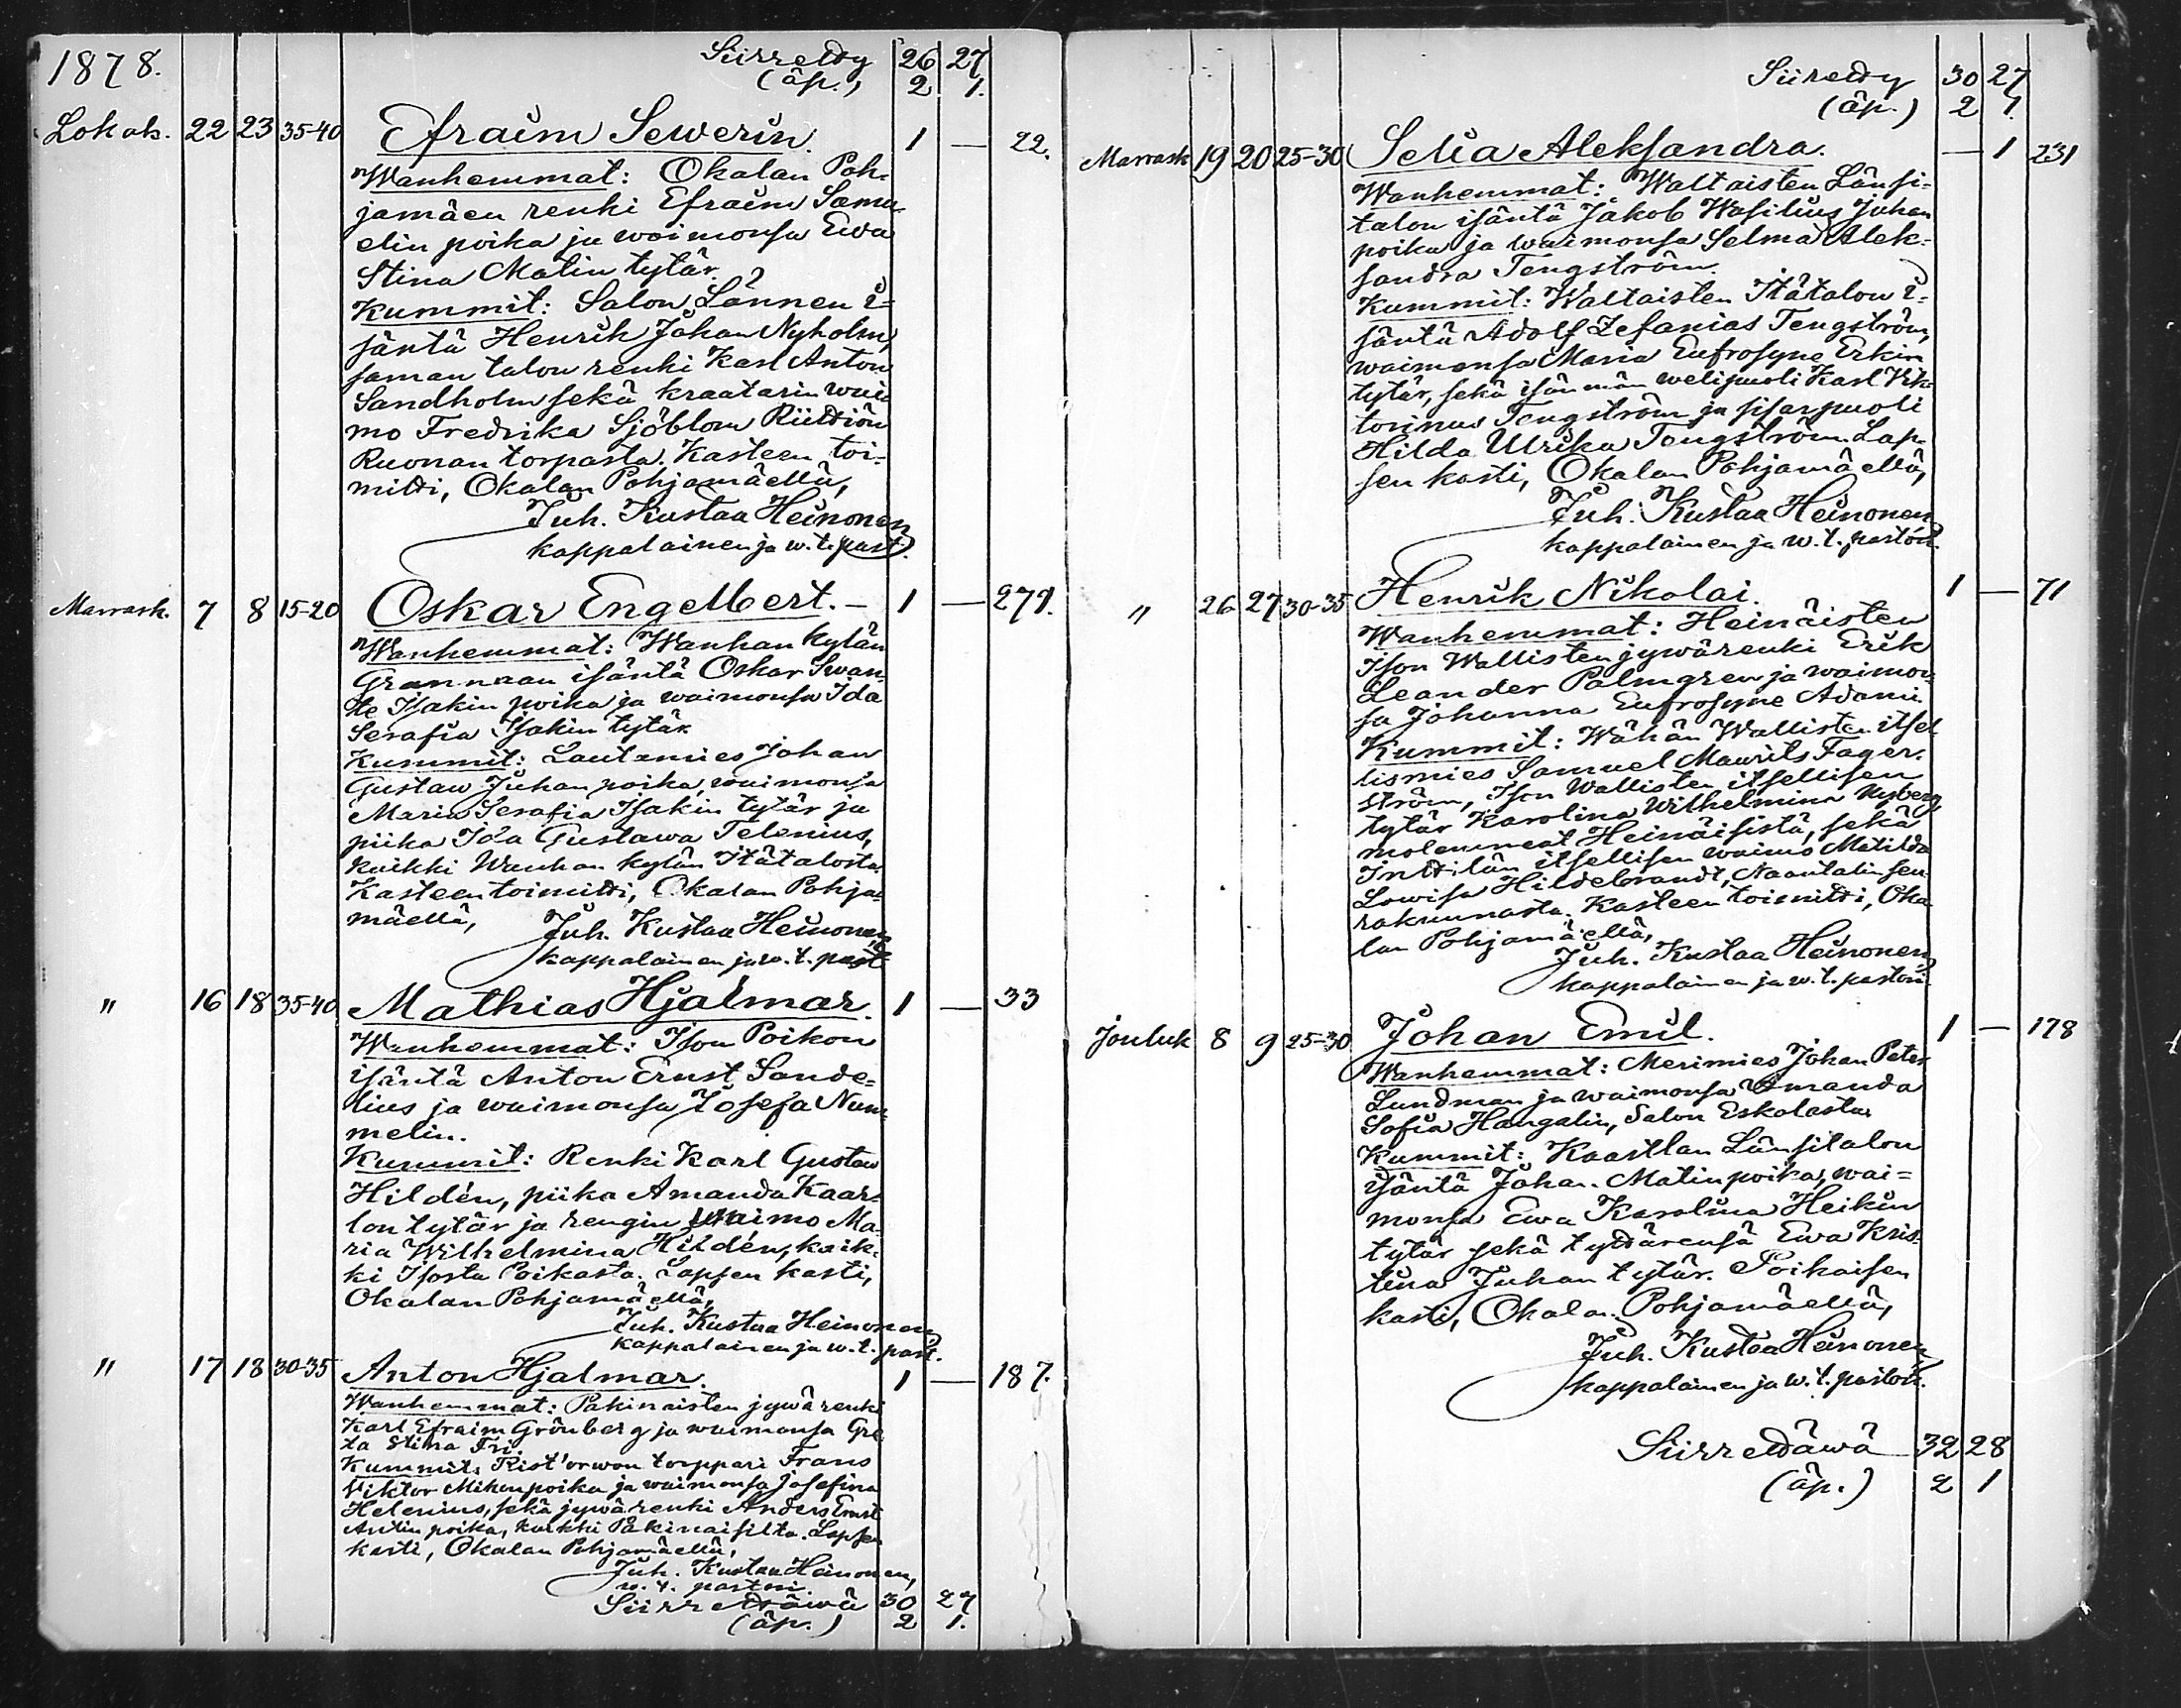 1878.
Siirretty 26 27
(äp.) 2 1.
Lokak. 22 23 35-40 Efraim Sewerin. 1 — 22.
Wanhemmat: Okalan Poh-
jamäen renki Efraim Samu-
elin poika ja waimonsa Ewa
Stina Matin tytär.
Kummit: Salon Lännen i-
säntä Henrik Johan Nyholm,
saman talon renki Karl Anton
Sandholm sekä kraatarin wai-
mo Fredrika Sjöblom Riittiön
Ruonan torpasta. Kasteen toi-
mitti, Okalan Pohjamäellä,
Juh. Kustaa Heinonen
kappalainen ja w.t. past.
Marrask. 7 8 15-20 Oskar Engelbert. — 1 — 279.
Wanhemmat: Wanhan kylän
Grannaan isäntä Oskar Swan-
te Isakin poika ja waimonsa Ida
Serafia Isakin tytär.
Kummit: Lautamies Johan
Gustaw Juhan poika, waimonsa
Maria Serafia Isakin tytär ja
piika Ida Gustawa Telenius,
kaikki Wanhan kylän Itätalosta.
Kasteen toimitti, Okalan Pohja-
mäellä,
Juh. Kustaa Heinonen,
kappalainen ja w.t. past.
" 16 18 35-40 Mathias Hjalmar. 1 — 33
Wanhemmat: Ison Poikon
isäntä Anton Ernst Sande-
lius ja waimonsa Josefa Num-
melin.
Kummit: Renki Karl Gustaw
Hildén, piika Amanda Kaar-
lon tytär ja rengin waimo Ma-
ria Wilhelmina Hildén, kaik-
ki Isosta Poikosta. Lapsen kasti,
Okalan Pohjamäellä,
Juh. Kustaa Heinonen
kappalainen ja w.t. past.
" 17 18 30-35 Anton Hjalmar. 1 — 187.
Wanhemmat: Pakinaisten jywärenki
Karl Efraim Grönberg ja waimonsa Gre-
ta Stina Fri.
Kummit: Rist'orwon torppari Frans
Viktor Mikonpoika ja waimonsa Josefina
Helenius, sekä jywärenki Anders Ernst
Antin poika, kaikki Pakinaisilta. Lapsen
kasti, Okalan Pohjamäellä,
Juh. Kustaa Heinonen,
w.t. pastori.
Siirrettäwä 30 27
(äp.) 2 1.
Siiretty 30 27
(äp.) 2 1.
Marrask 19 20 25-30 Selia Aleksandra. — 1 231
Wanhemmat: Waltaisten Länsi-
talon isäntä Jakob Wasilius Juhan
poika ja waimonsa Selma Alek-
sandra Tengström.
Kummit: Waltaisten Itätalon i-
säntä Adolf Zefanias Tengström,
waimonsa Maria Eufrosyne Erkin
tytär, sekä isännän welipuoli Karl Vik-
torinus Tengström ja sisarpuoli
Hilda Ulrika Tengström. Lap-
sen kasti, Okalan Pohjamäellä,
Juh. Kustaa Heinonen
kappalainen ja w.t. pastori.
" 26 27 30-35 Henrik Nikolai. 1 — 71
Wanhemmat: Heinäisten
Ison Wallisten jywärenki Erik
Leander Palmgren ja waimon-
sa Johanna Eufrosyne Adamin
Kummit: Wähän Wallisten itsel-
lismies Samuel Maurits Fager-
ström, Ison Wallisten itsellisen
tytär Karolina Wilhelmina Nyberg,
molemmat Heinäisistä, sekä
Inttilän itsellisen waimo Matilda
Lowisa Hildebrandt, Naantalin seu-
rakunnasta. Kasteen toimitti, Oka-
lan Pohjamäellä,
Juh. Kustaa Heinonen
kappalainen ja w.t. pastori
Jouluk 8 9 25-30 Johan Emil. 1 — 178
Wanhemmat: Merimies Johan Peter
Lundman ja waimonsa Amanda
Sofia Hangelin, Salon Eskolasta.
Kummit: Kaastlan Länsitalon
isäntä Johan Matinpoika, wai-
monsa Ewa Karolina Heikin
tytär sekä tyttärensä Ewa Kris-
tina Juhan tytär. Poikaisen
kasti, Okalan Pohjamäellä,
Juh. Kustaa Heinonen
kappalainen ja w.t. pastori.
Siirrettäwä 32 28
(äp.) 2 1